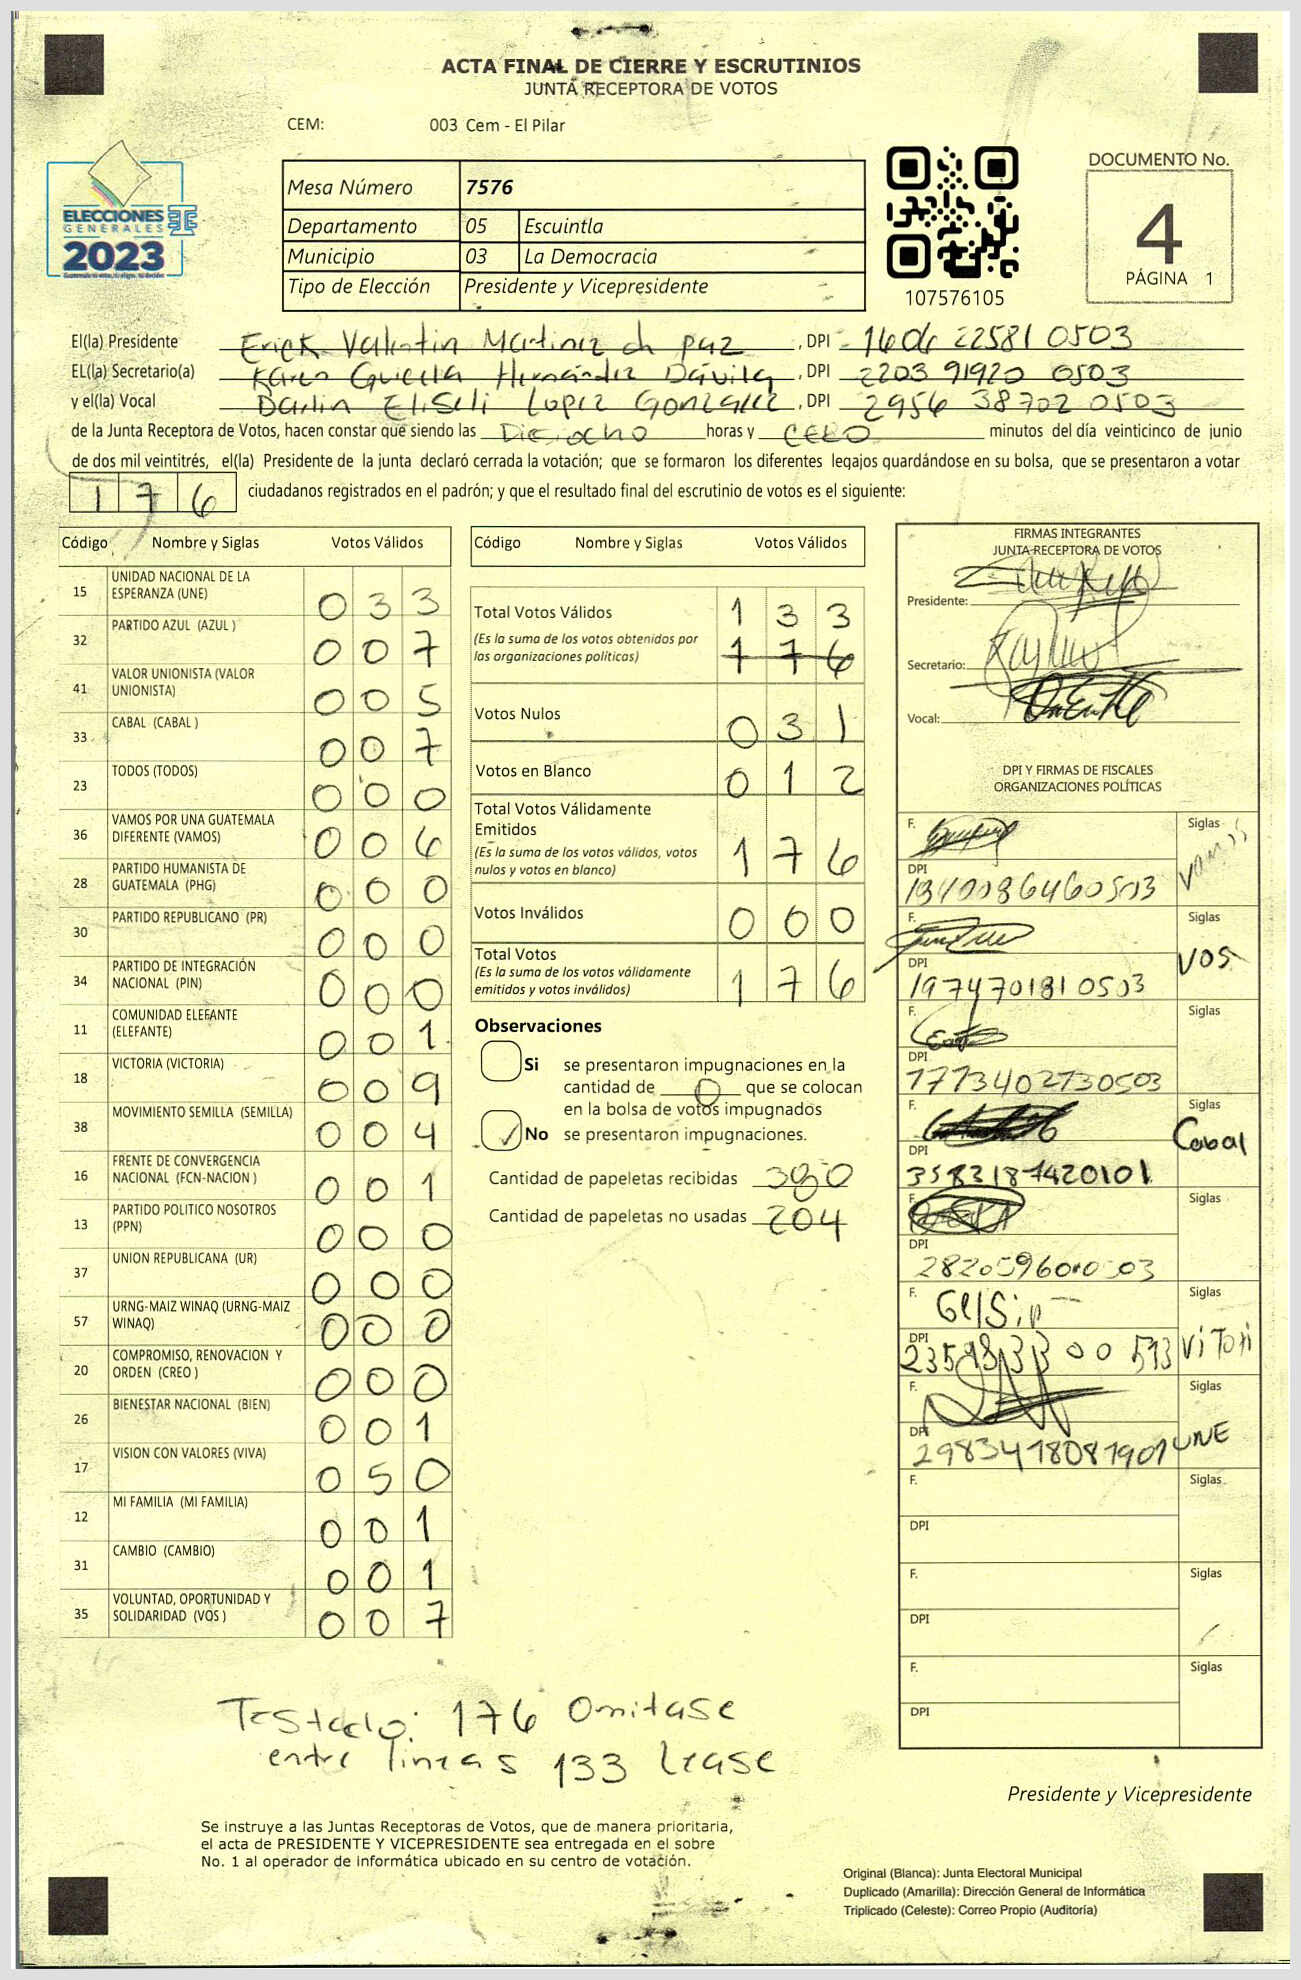 ACTA FINAL DE CIERRE Y ESCRUTINIOS
JUNTA RECEPTORA DE VOTOS
CEM: 003 Cem - El Pilar
ELECCIONES
GENERALES
2023
Mesa Número 7576
Departamento 05 Escuintla
Municipio 03 La Democracia
Tipo de Elección Presidente y Vicepresidente
107576105
DOCUMENTO No.
4
PÁGINA 1
El(la) Presidente Erick Valentin Martinez de paz, DPI 1606 22581 0503
EL(la) Secretario(a) Karen Hernández Dávila, DPI 2203 91920 0503
y el(la) Vocal Lopez Gonzalez, DPI 2956 38702 0503
de la Junta Receptora de Votos, hacen constar que siendo las Dieciocho horas y CERO minutos del día veinticinco de junio
de dos mil veintitrés, el(la) Presidente de la junta declaró cerrada la votación; que se formaron los diferentes legajos guardándose en su bolsa, que se presentaron a votar
176 ciudadanos registrados en el padrón; y que el resultado final del escrutinio de votos es el siguiente:
Código Nombre y Siglas Votos Válidos
15 UNIDAD NACIONAL DE LA ESPERANZA (UNE) 033
32 PARTIDO AZUL (AZUL ) 007
41 VALOR UNIONISTA (VALOR UNIONISTA) 005
33 CABAL (CABAL ) 007
23 TODOS (TODOS) 000
36 VAMOS POR UNA GUATEMALA DIFERENTE (VAMOS) 006
28 PARTIDO HUMANISTA DE GUATEMALA (PHG) 000
30 PARTIDO REPUBLICANO (PR) 000
34 PARTIDO DE INTEGRACIÓN NACIONAL (PIN) 000
11 COMUNIDAD ELEFANTE (ELEFANTE) 001
18 VICTORIA (VICTORIA) 009
38 MOVIMIENTO SEMILLA (SEMILLA) 004
16 FRENTE DE CONVERGENCIA NACIONAL (FCN-NACION ) 001
13 PARTIDO POLITICO NOSOTROS (PPN) 000
37 UNION REPUBLICANA (UR) 000
57 URNG-MAIZ WINAQ (URNG-MAIZ WINAQ) 000
20 COMPROMISO, RENOVACION Y ORDEN (CREO ) 000
26 BIENESTAR NACIONAL (BIEN) 001
17 VISION CON VALORES (VIVA) 050
12 MI FAMILIA (MI FAMILIA) 001
31 CAMBIO (CAMBIO) 001
35 VOLUNTAD, OPORTUNIDAD Y SOLIDARIDAD (VOS ) 007
Código Nombre y Siglas Votos Válidos
Total Votos Válidos 133
(Es la suma de los votos obtenidos por las organizaciones políticas) 176
Votos Nulos 031
Votos en Blanco 012
Total Votos Válidamente Emitidos
(Es la suma de los votos válidos, votos nulos y votos en blanco) 176
Votos Inválidos 000
Total Votos
(Es la suma de los votos válidamente emitidos y votos inválidos) 176
Observaciones
Si se presentaron impugnaciones en la
cantidad de 0 que se colocan
en la bolsa de votos impugnados
✓ No se presentaron impugnaciones.
Cantidad de papeletas recibidas 380
Cantidad de papeletas no usadas 204
FIRMAS INTEGRANTES
JUNTA RECEPTORA DE VOTOS
Presidente:
Secretario:
Vocal:
DPI Y FIRMAS DE FISCALES
ORGANIZACIONES POLÍTICAS
F. Siglas vamos
DPI
F. Siglas VOS
DPI 1974701810503
F. Siglas
DPI 1773402730503
F. Siglas Cabal
DPI 3583187420101
F. Siglas
DPI
F. Siglas ViTori
DPI
F. Siglas UNE
DPI 2983418081901
F. Siglas
DPI
F. Siglas
DPI
F. Siglas
DPI
Testado: 176 Omitase
entre lineas 133 Lease
Presidente y Vicepresidente
Se instruye a las Juntas Receptoras de Votos, que de manera prioritaria,
el acta de PRESIDENTE Y VICEPRESIDENTE sea entregada en el sobre
No. 1 al operador de informática ubicado en su centro de votación.
Original (Blanca): Junta Electoral Municipal
Duplicado (Amarilla): Dirección General de Informática
Triplicado (Celeste): Correo Propio (Auditoría)